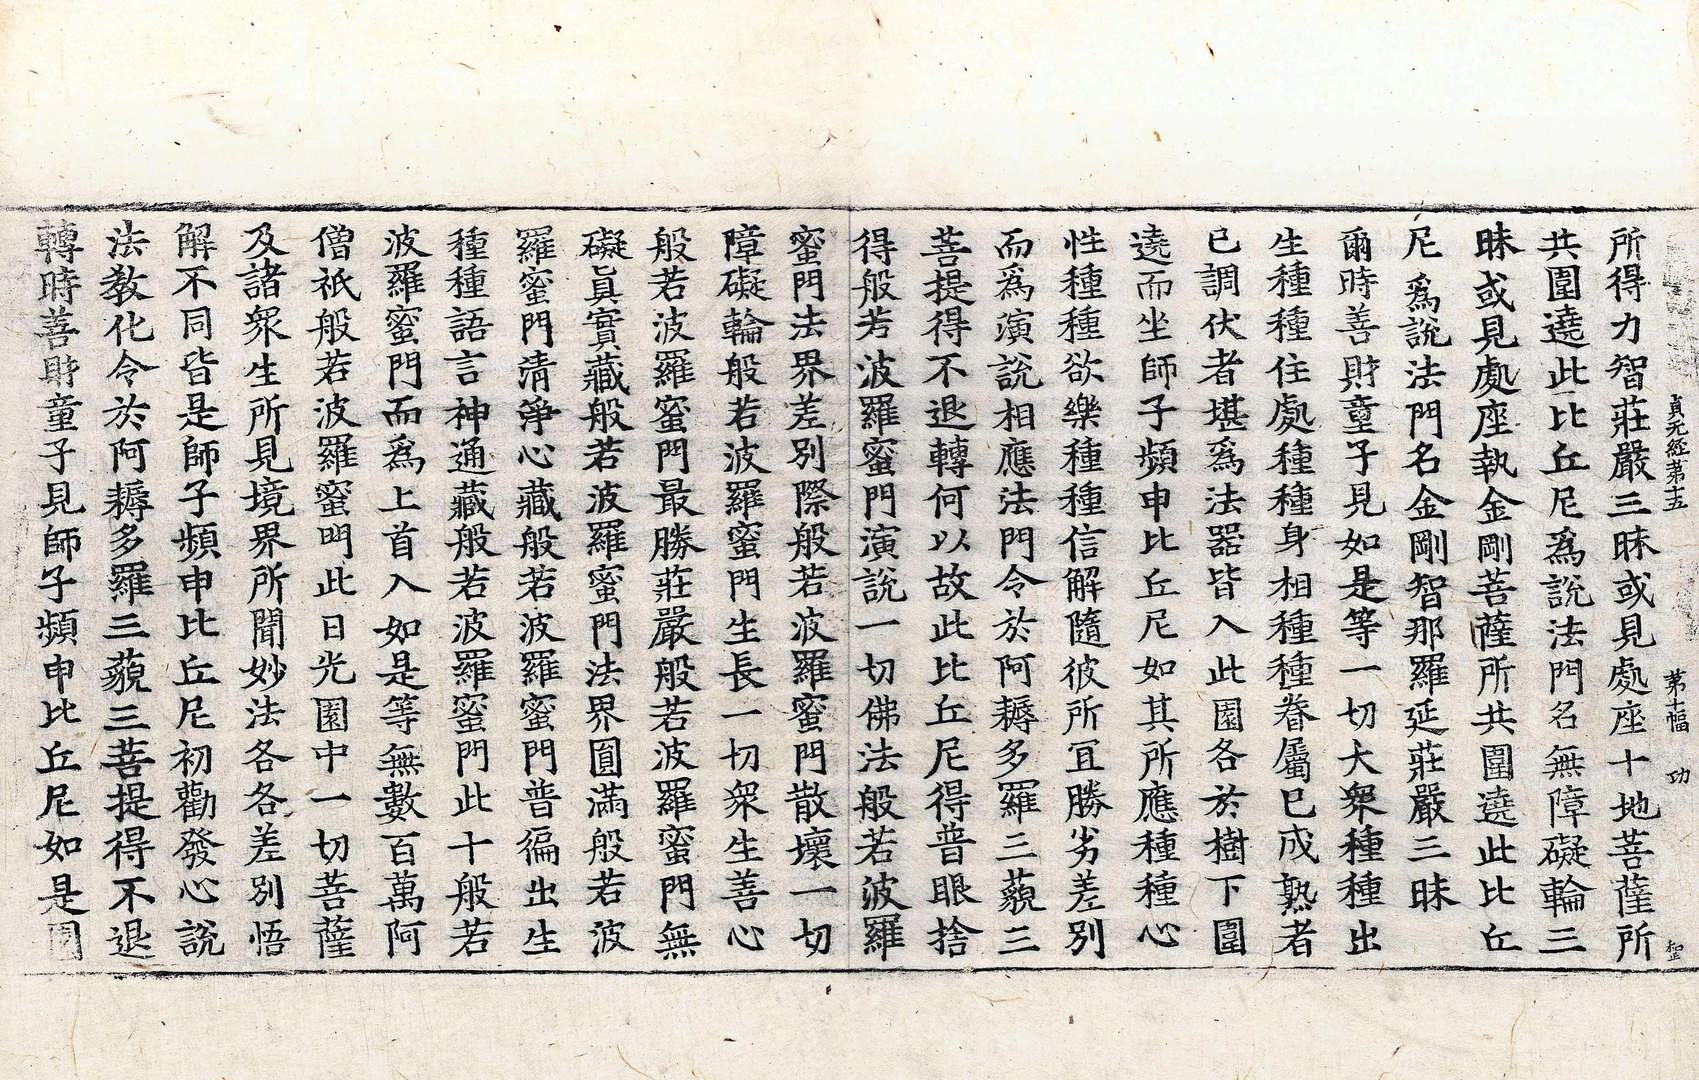 貞元經第十五 第十幅 功
所得力智莊嚴三昧或見處座十地菩薩所
共圍遶此比丘尼爲說法門名無障礙輪三
昧或見處座執金剛菩薩所共圍遶此比丘
尼爲說法門名金剛智那羅延莊嚴三昧
爾時善財童子見如是等一切大衆種種出
生種種住處種種身相種種眷屬已成熟者
已調伏者堪爲法器皆入此園各於樹下圍
遶而坐師子頻申比丘尼如其所應種種心
性種種欲樂種種信解隨彼所宜勝劣差別
而爲演說相應法門令於阿耨多羅三藐三
菩提得不退轉何以故此比丘尼得普眼捨
得般若波羅蜜門演說一切佛法般若波羅
蜜門法界差別際般若波羅蜜門散壞一切
障礙輪般若波羅蜜門生長一切衆生善心
般若波羅蜜門最勝莊嚴般若波羅蜜門無
礙眞實藏般若波羅蜜門法界圓滿般若波
羅蜜門清淨心藏般若波羅蜜門普徧出生
種種語言神通藏般若波羅蜜門此十般若
波羅蜜門而爲上首入如是等無數百萬阿
僧祇般若波羅蜜門此日光園中一切菩薩
及諸衆生所見境界所聞妙法各各差別悟
解不同皆是師子頻申比丘尼初勸發心說
法教化令於阿耨多羅三藐三菩提得不退
轉時善財童子見師子頻申比丘尼如是園